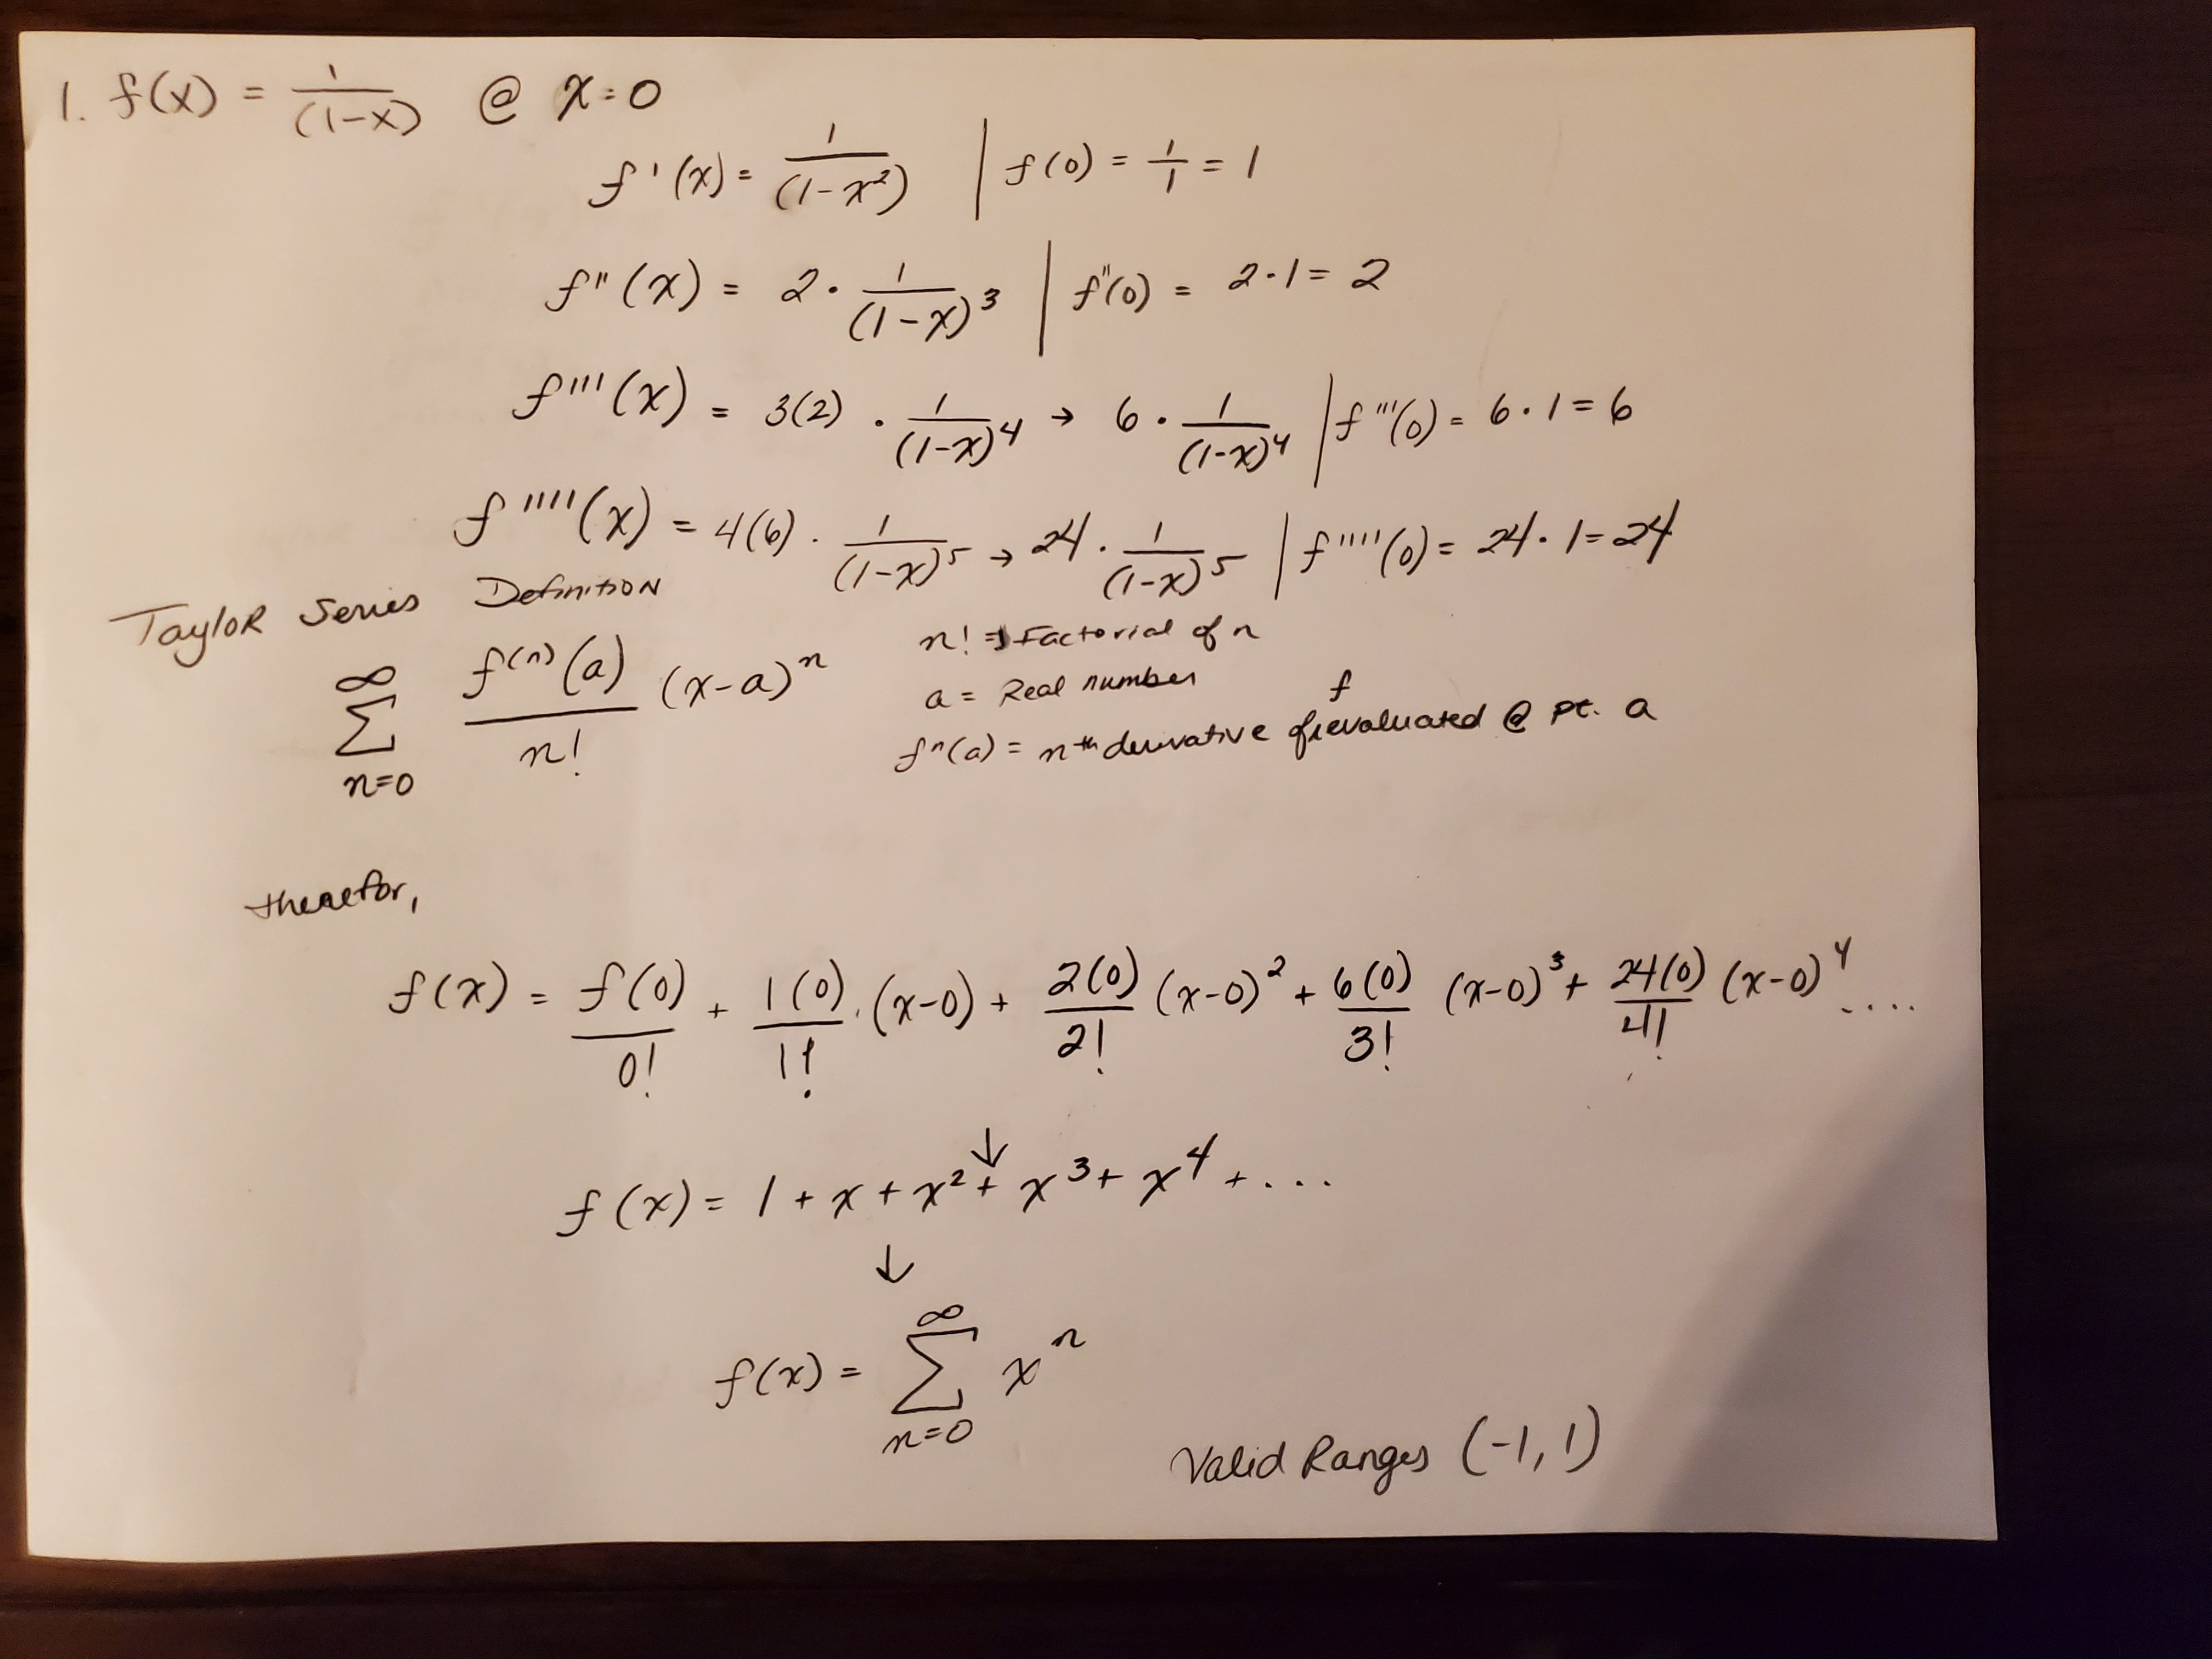 1. f(x) = 1/(1-x) @ x=0
f'(x) = 1/(1-x²) | f(0) = 1/1 = 1
f''(x) = 2 · 1/(1-x)³ | f''(0) = 2·1 = 2
f'''(x) = 3(2) · 1/(1-x)⁴ → 6 · 1/(1-x)⁴ | f'''(0) = 6·1 = 6
f''''(x) = 4(6) · 1/(1-x)⁵ → 24 · 1/(1-x)⁵ | f''''(0) = 24·1 = 24
Taylor Series Definition
∞ Σ n=0 f⁽ⁿ⁾(a)/n! (x-a)ⁿ
n! ⇒ Factorial of n
a = Real number
fⁿ(a) = nᵗʰ derivative of f evaluated @ pt. a
therefor,
f(x) = f(0)/0! + 1(0)/1! · (x-0) + 2(0)/2! (x-0)² + 6(0)/3! (x-0)³ + 24(0)/4! (x-0)⁴ ....
↓
f(x) = 1 + x + x² + x³ + x⁴ + ...
↓
f(x) = ∞ Σ n=0 xⁿ
Valid Ranges (-1, 1)